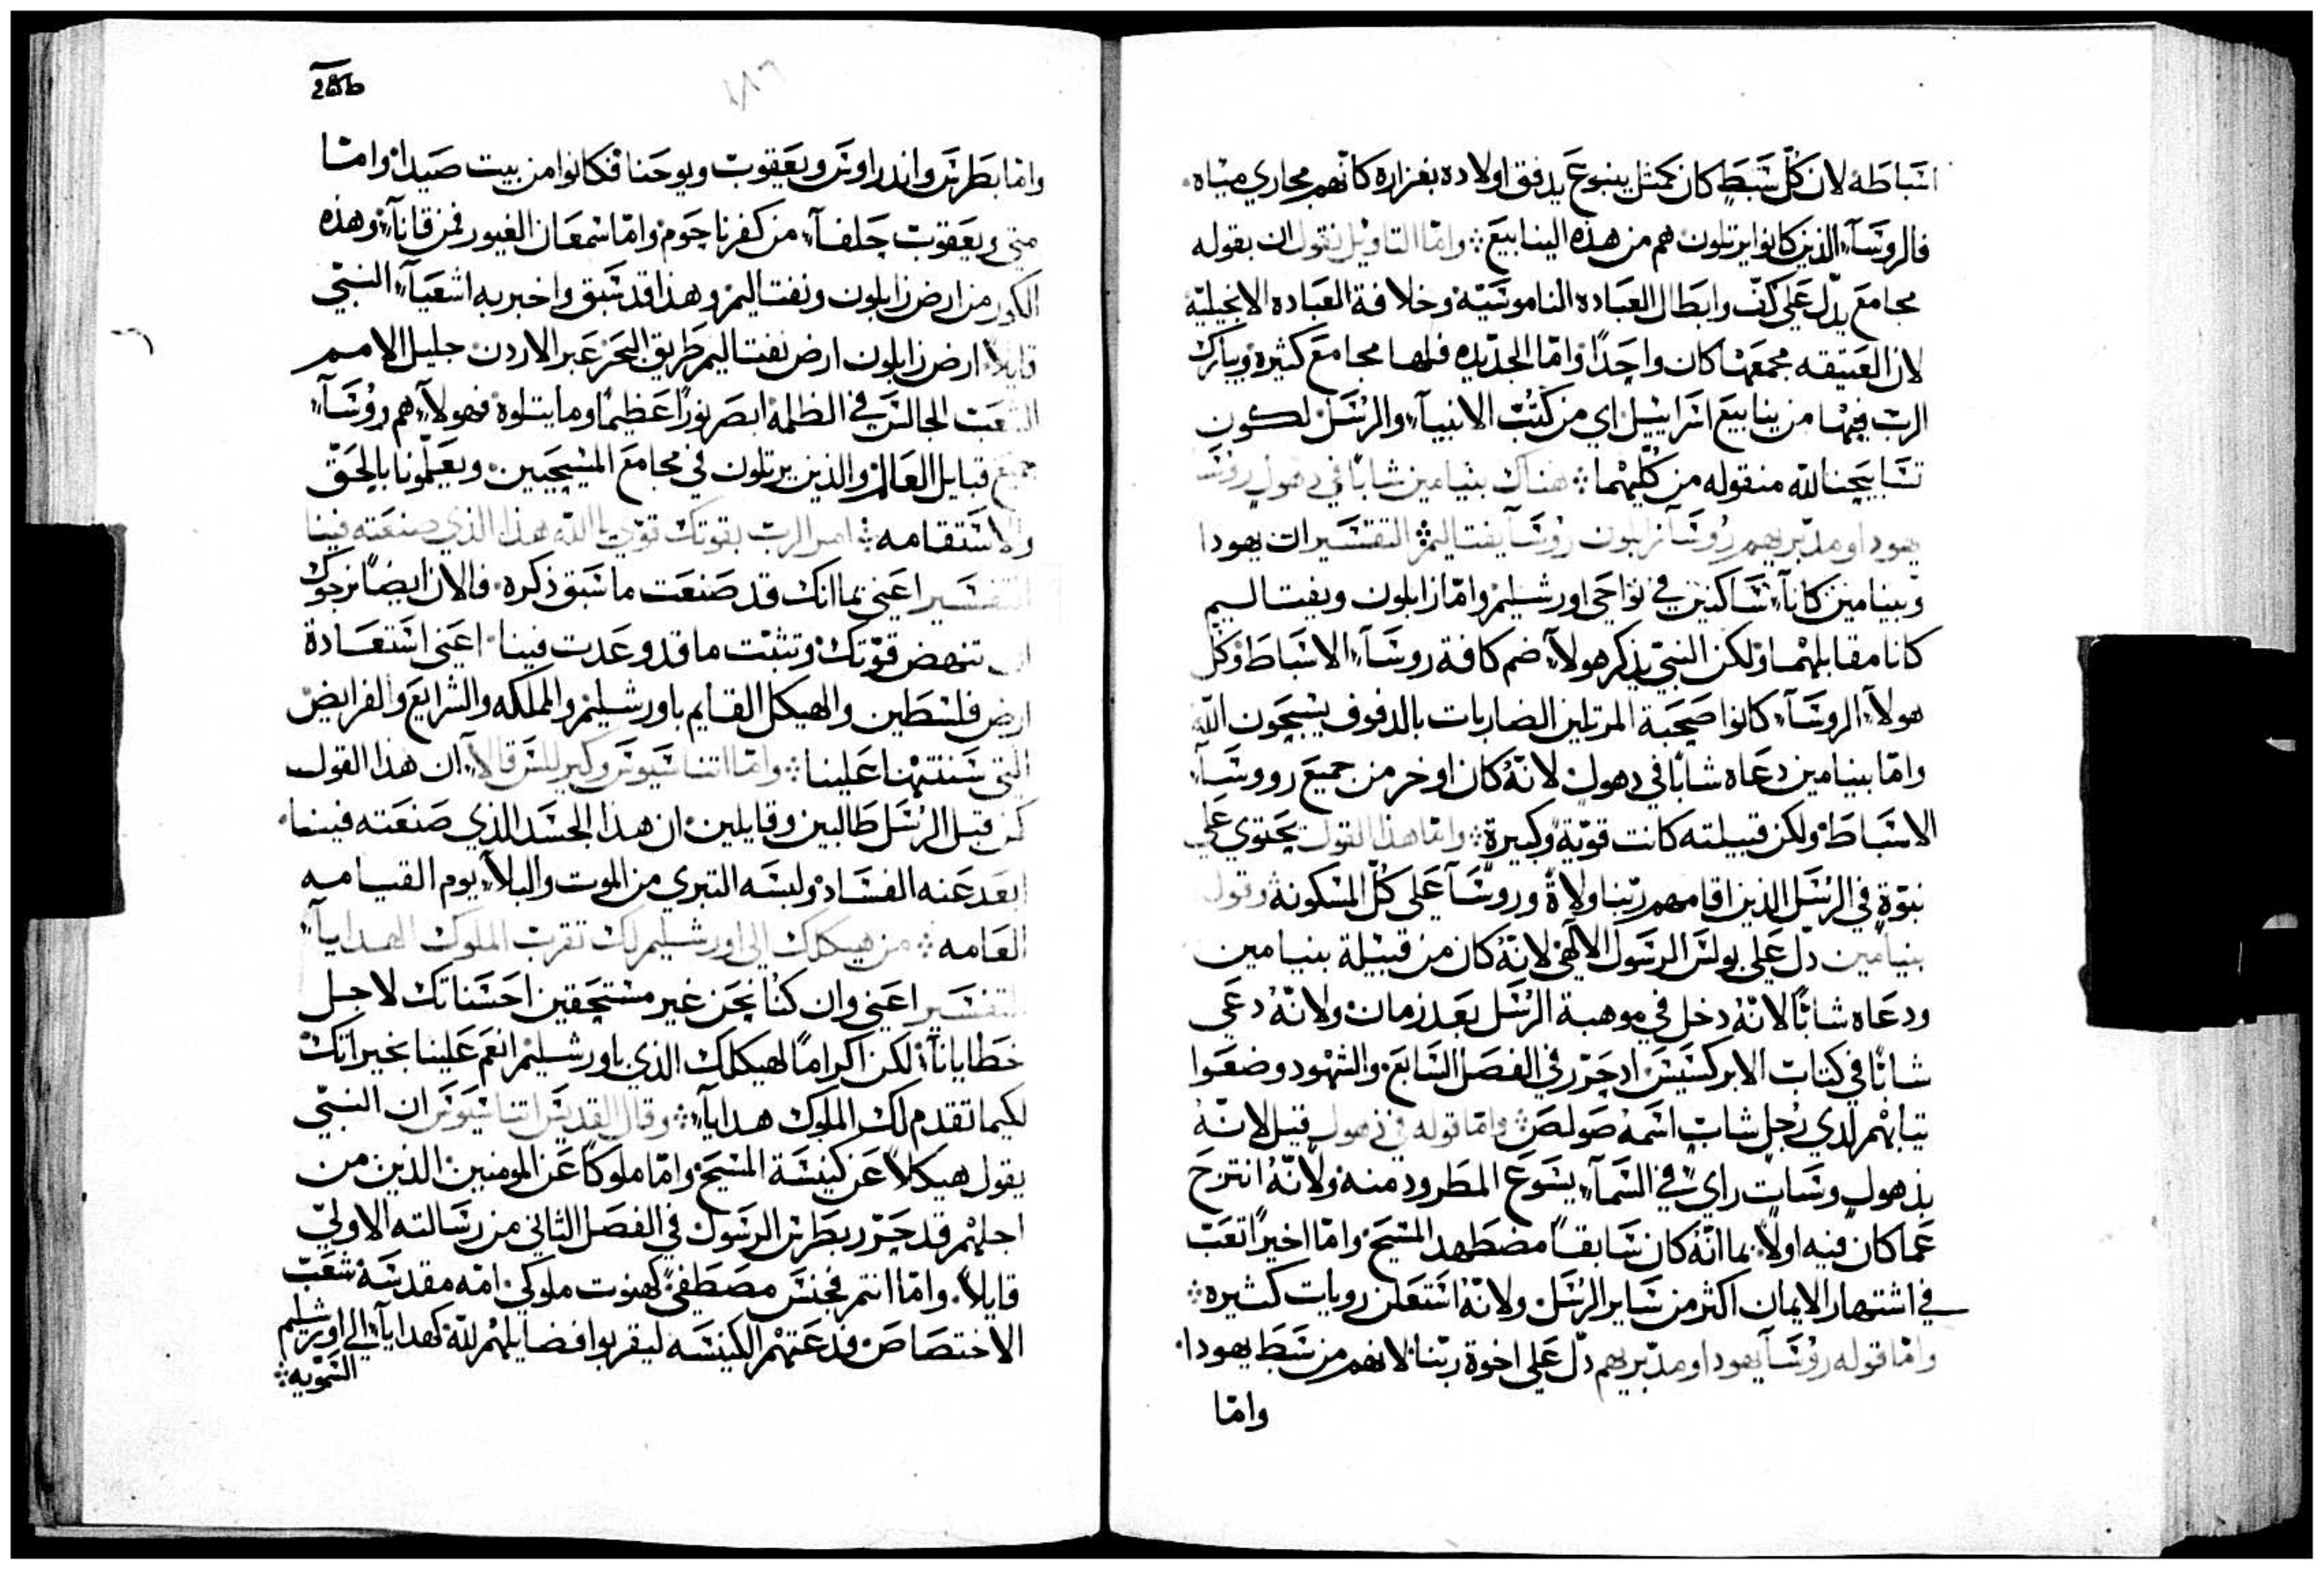 اسباطه لان كل سبط كان كمثل ينبوع يدفق اولاده بغزاره كانهم مجاري مياه.
فالروسآء الذين كانوا يرتلون هم من هذه الينابيع ❖ واما التاويل نقول ان بقوله
مجامع يدل على كف وابطال العباده الناموسيه وخلافة العباده الانجيليه
لان العتيقه مجمعها كان واحدا واما الجديده فلها مجامع كثيره ويبارك
الرب فيها من ينابيع اسراييل اي من كتب الانبيآء والرسل لكون
تسابيحنا لله منقوله من كليهما ❖ هناك بنيامين شابا في ذهول روسا
يهودا ومدبريهم روسآ زابلون روسآ يفتاليم ❖ التفسير ان يهودا
وبنيامين كانآ ساكنين في نواحي اورشليم واما زابلون ويفتاليم
كانا مقابلهما ولكن النبي بذكر هولآء ضم كافة روسآء الاسباط وكل
هولآء الروسآء كانوا صحبة المرتلين الضاربات بالدفوف يسبحون الله
واما بنيامين دعاه شابا في دهول لانه كان اوخر من جميع رووسآء
الاسباط ولكن قبيلته كانت قوية وكبيرة ❖ واما هذا القول يحتوي على
نبوة في الرسل الذين اقامهم ربنا ولاة وروسآ على كل المسكونه ❖ وقول
بنيامين دل على بولس الرسول الالهي لانه كان من قبيلة بنيامين
ودعاه شابا لانه دخل في موهبة الرسل بعد زمان ولانه دعي
شابا في كتاب الابركسيس اد حرر في الفصل السابع والشهود وضعوا
تيابهم لدي رجل شاب اسمه صولص ❖ واما قوله في ذهول قيل لانه
بذهول وسبات راي في السمآء يسوع المطرود منه ولانه انتزح
عما كان فيه اولا بما انه كان سابقا مضطهد المسيح واما اخيرا تعب
في اشتهار الايمان اكثر من ساير الرسل ولانه استعلن رويات كثيره ❖
واما قوله روسآ يهودا ومدبريهم دل على اخوة ربنا لانهم من سبط يهودا.
واما
286
واما بطرس واندراوس ويعقوب ويوحنا فكانوا من بيت صيدا واما
متي ويعقوب حلفآء من كفرناحوم واما سمعان الغيور فمن قانآء وهذه
الكور من ارض زابلون ونفتاليم وهذا قد سبق واخبر به اشعيآء النبي
قايلا ارض زابلون ارض نفتاليم طريق البحر عبر الاردن جليل الامم
الشعب الجالس في الظلمه ابصر نورا عظيما وما يتلوه فهولآء هم روسآء
جميع قبايل العالم والذين يرتلون في مجامع المسيحيين ويعلمونا بالحق
والاستقامه ❖ امر الرب بقوتك قوي يا الله هذا الذي صنعته فينا
التفسير اعني بما انك قد صنعت ما سبق ذكره فالان ايضا نرجوك
ان تنهض قوتك وتثبت ما قد وعدت فينا اعني استعادة
ارض فلسطين والهيكل القايم باورشليم والملكه والشرايع والفرايض
التي سننتها علينا ❖ واما اتناسيوس وكيرللس قالآ ان هذا القول
من قبل الرسل طالبين وقايلين ان هذا الجسد الذي صنعته فينا.
ابعد عنه الفساد ولبسه التبري من الموت والبلآء يوم القيامه
العامه ❖ من هيكلك الي اورشليم لك تقرب الملوك الهدايآء
التفسير اعني وان كنا نحن غير مستحقين احسناتك لاجل
خطايانآء لكن اكراما لهيكلك الذي باورشليم انعم علينا بخيراتك
لكيما تقدم لك الملوك هدايآء ❖ وقال القديس اتناسيوس ان النبي
يقول هيكلا عن كنيسة المسيح واما ملوكا عن المومنين الذين من
اجلهم قد حرر بطرس الرسول في الفصل الثاني من رسالته الاولي
قايلا واما انتم فجنس مصطفي كهنوت ملوكي امه مقدسه شعب
الاختصاص فدعتهم الكنيسه ليقربوا فضايلهم لله كهدايآء الي اورشليم
السمويه ❖